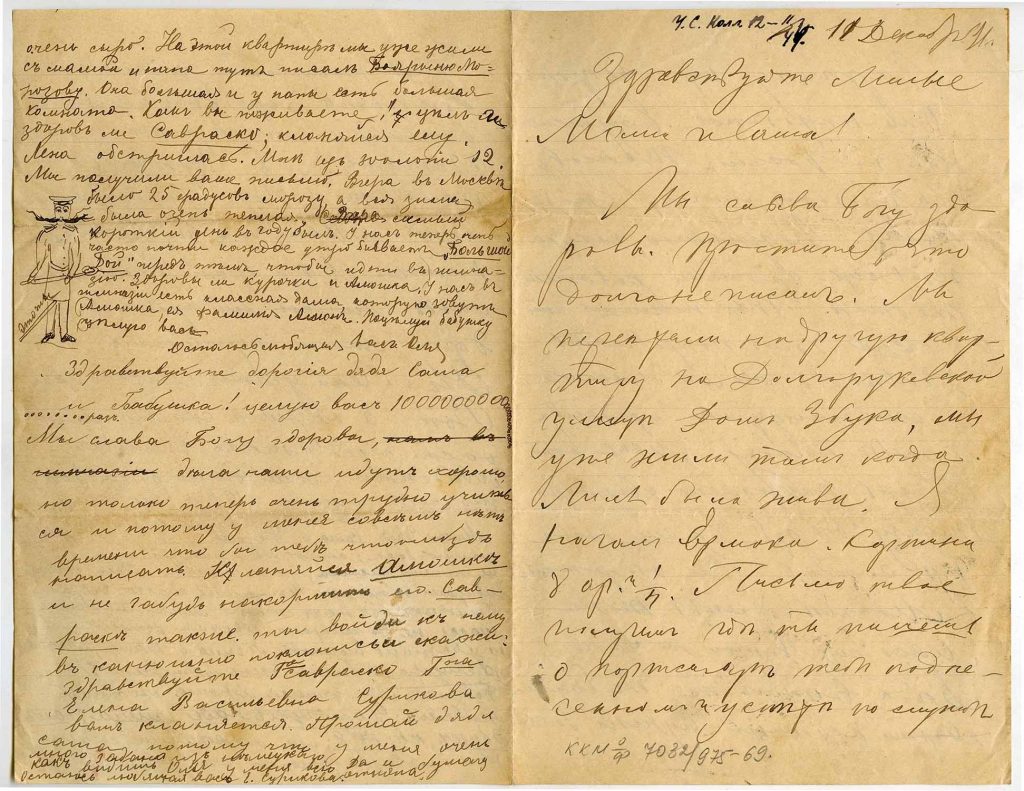 очень сыро. На этой квартирѣ мы уже жили
съ мамой и папа тутъ писалъ Боярыню Мо-
розову. Она большая и у папы есть большая
комната. Какъ вы поживаете,
здоровъ ли Савраско, кланяйся ему
Лена обстриглась. Мнѣ изъ зоологіи 12.
Мы получили ваше письмо. Вчера въ Москвѣ
было 25 градусовъ морозу а вся зима
была очень теплая. самый
короткій день въ году былъ. У насъ теперь
часто почти каждое утро бываетъ „Большой
бой" передъ тѣмъ, чтобы идти въ гимна-
зію. Здоровы ли курочки и Амошка. У насъ въ
гимназіи есть классная дама которую зовутъ
Амошка ея фамилия Амонъ. Поцѣлуй бабушку
цѣлую васъ
Остаюсь любящая васъ Оля
Здравствуйте дорогія дядя Саша
и Бабушка! целую васъ 10000000000
разъ.
Мы слава Богу здоровы, намъ въ
гимназіи дѣла наши идутъ хорошо,
но только теперь очень трудно учить
ся и потому у меня совсѣмъ нѣтъ
времени что бы тебѣ что нибудь
написать. Кланяйся Амошкѣ
и не забудь накормить его. Сав-
раскѣ также. ты войди къ нему
въ конюшню поклонись и скажи:
Здравствуйте Гна Савраско Гна
Елена Васильевна Сурикова
вамъ кланяется. Прощай дядя
Саша потому что у меня очень
много
какъ видишь Оля у меня всю бумагу
Осталась любящая васъ Е. Сурикова.
У.С. Колл 12-
11 Декабр 91.
Здравствуйте Милые
Мама и Саша!
Мы слава Богу здо
ровы. Простите, что
долго не писалъ. Мы
переѣхали на другую квар-
тиру на Долгоруковской
улицѣ Домъ Збука, мы
уже жили тамъ когда
Лиля была жива. Я
началъ Ермака. Картина
8 ар. и 1/4. Письмо твое
получилъ гдѣ ты пишешь
о портсигарѣ тебѣ подне-
сенномъ по случаю
ККМ о/ф 7032/975-69.